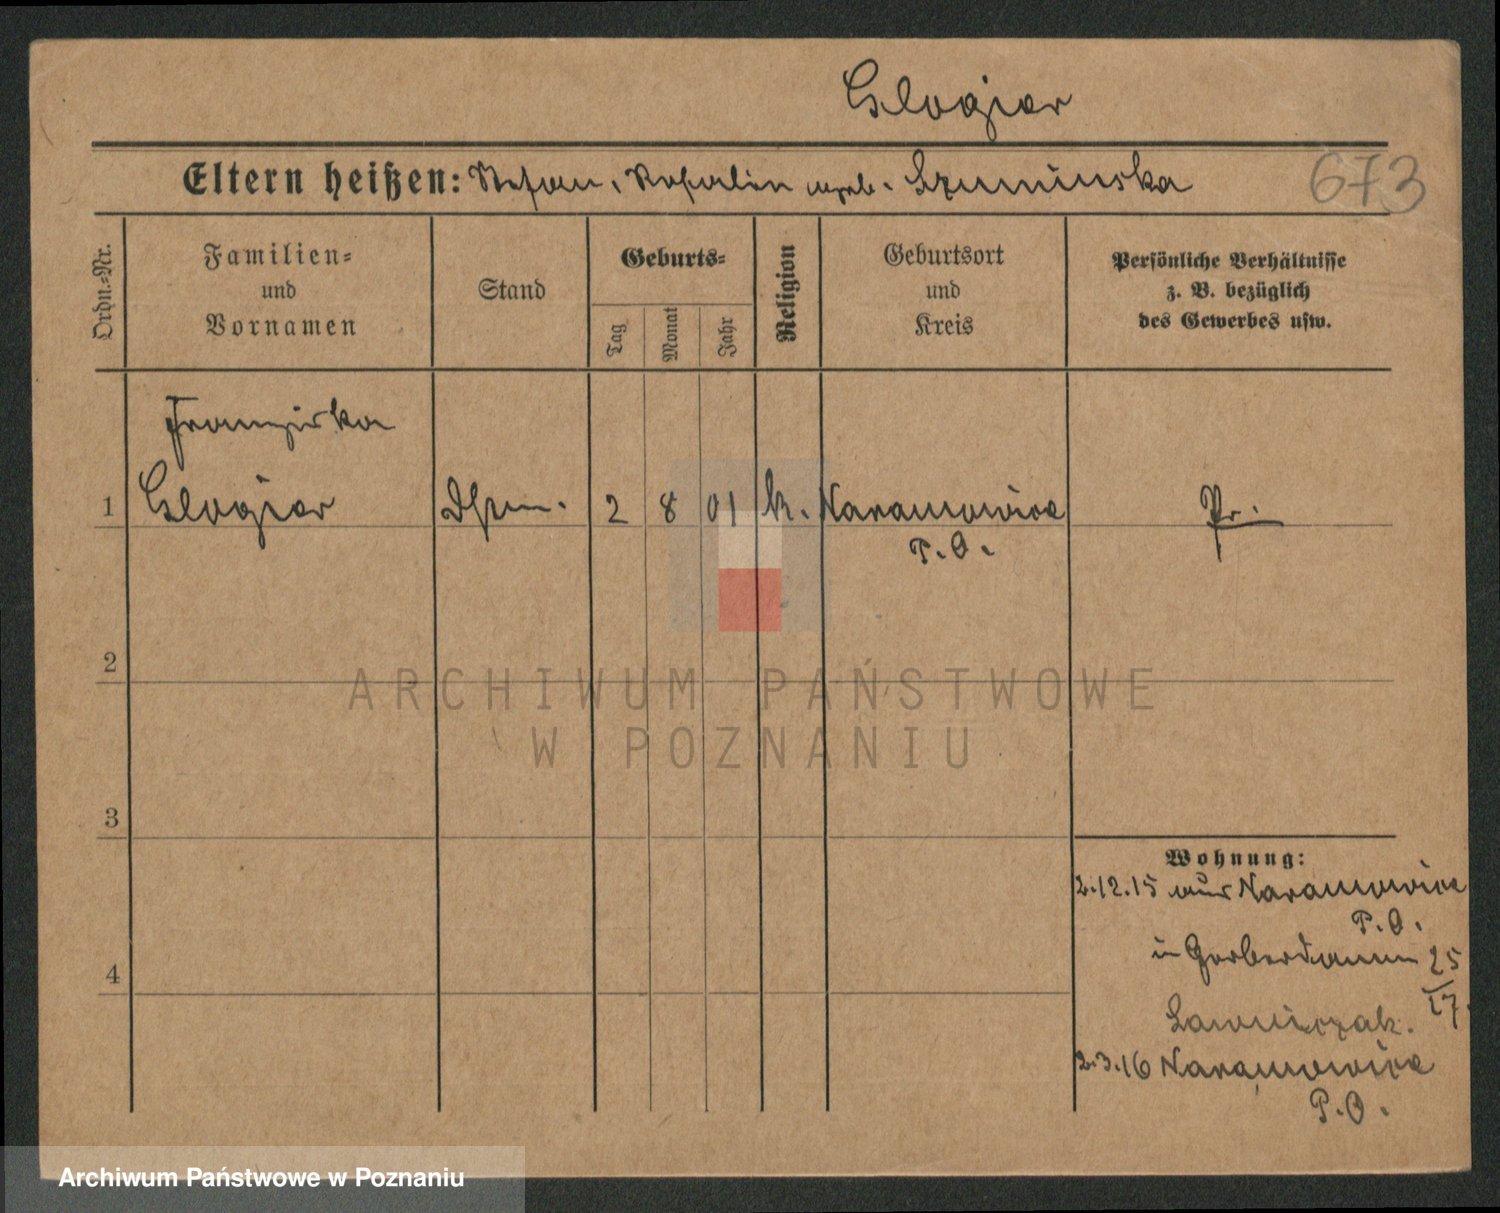 Glogier
Eltern heißen: Stefan, Rosalie geb. Szuminska
673
Ordn.-Nr.
Familien-
und
Vornamen
Stand
Geburts-
Tag
Monat
Jahr
Religion
Geburtsort
und
Kreis
Persönliche Verhältnisse
z. B. bezüglich
des Gewerbes usw.
Franziska
1 Glogier 2 8 01 k. Naramowice Pr.
P. O.
2
ARCHIWUM PAŃSTWOWE
W POZNANIU
3
Wohnung:
2.12.15 aus Naramowice
P. O.
in Gerberdamm 25
/17.
4
Lawniczak.
2.3.16 Naramowice
P. O.
Archiwum Państwowe w Poznaniu